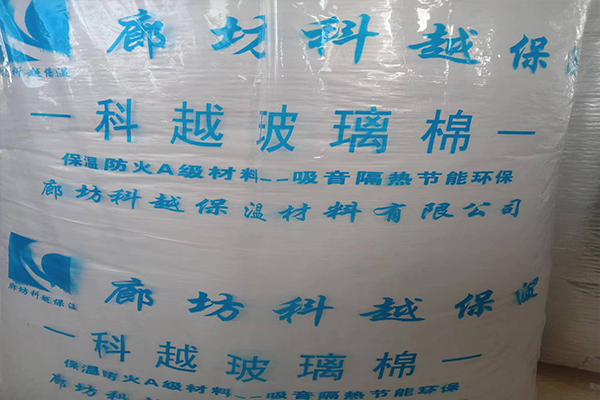 廊坊科越保温
科越保温
—科越玻璃棉—
保温防火A级材料--吸音隔热节能环保
廊坊科越保温材料有限公司
廊坊科越保温
廊坊科越保温
—科越玻璃棉—
保温防火A级材料--吸音隔热节能环保
廊坊科越保